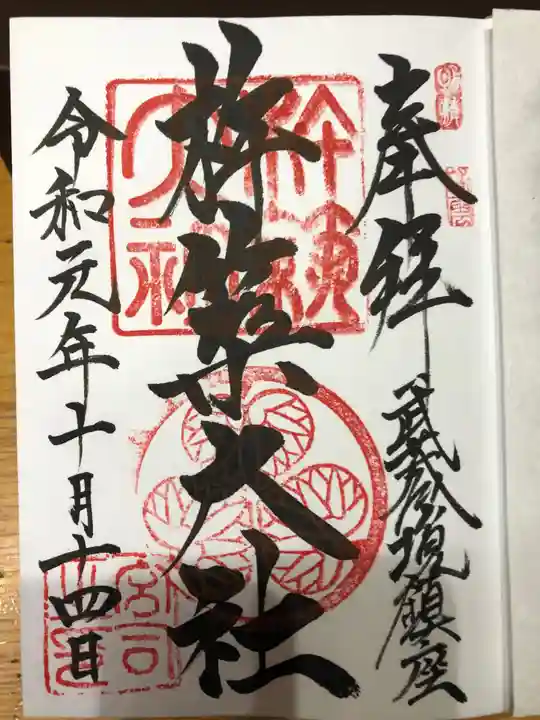 奉拝
武蔵境鎮座
杵築大社
令和元年十月十四日
杵築
大社
宮司
之印